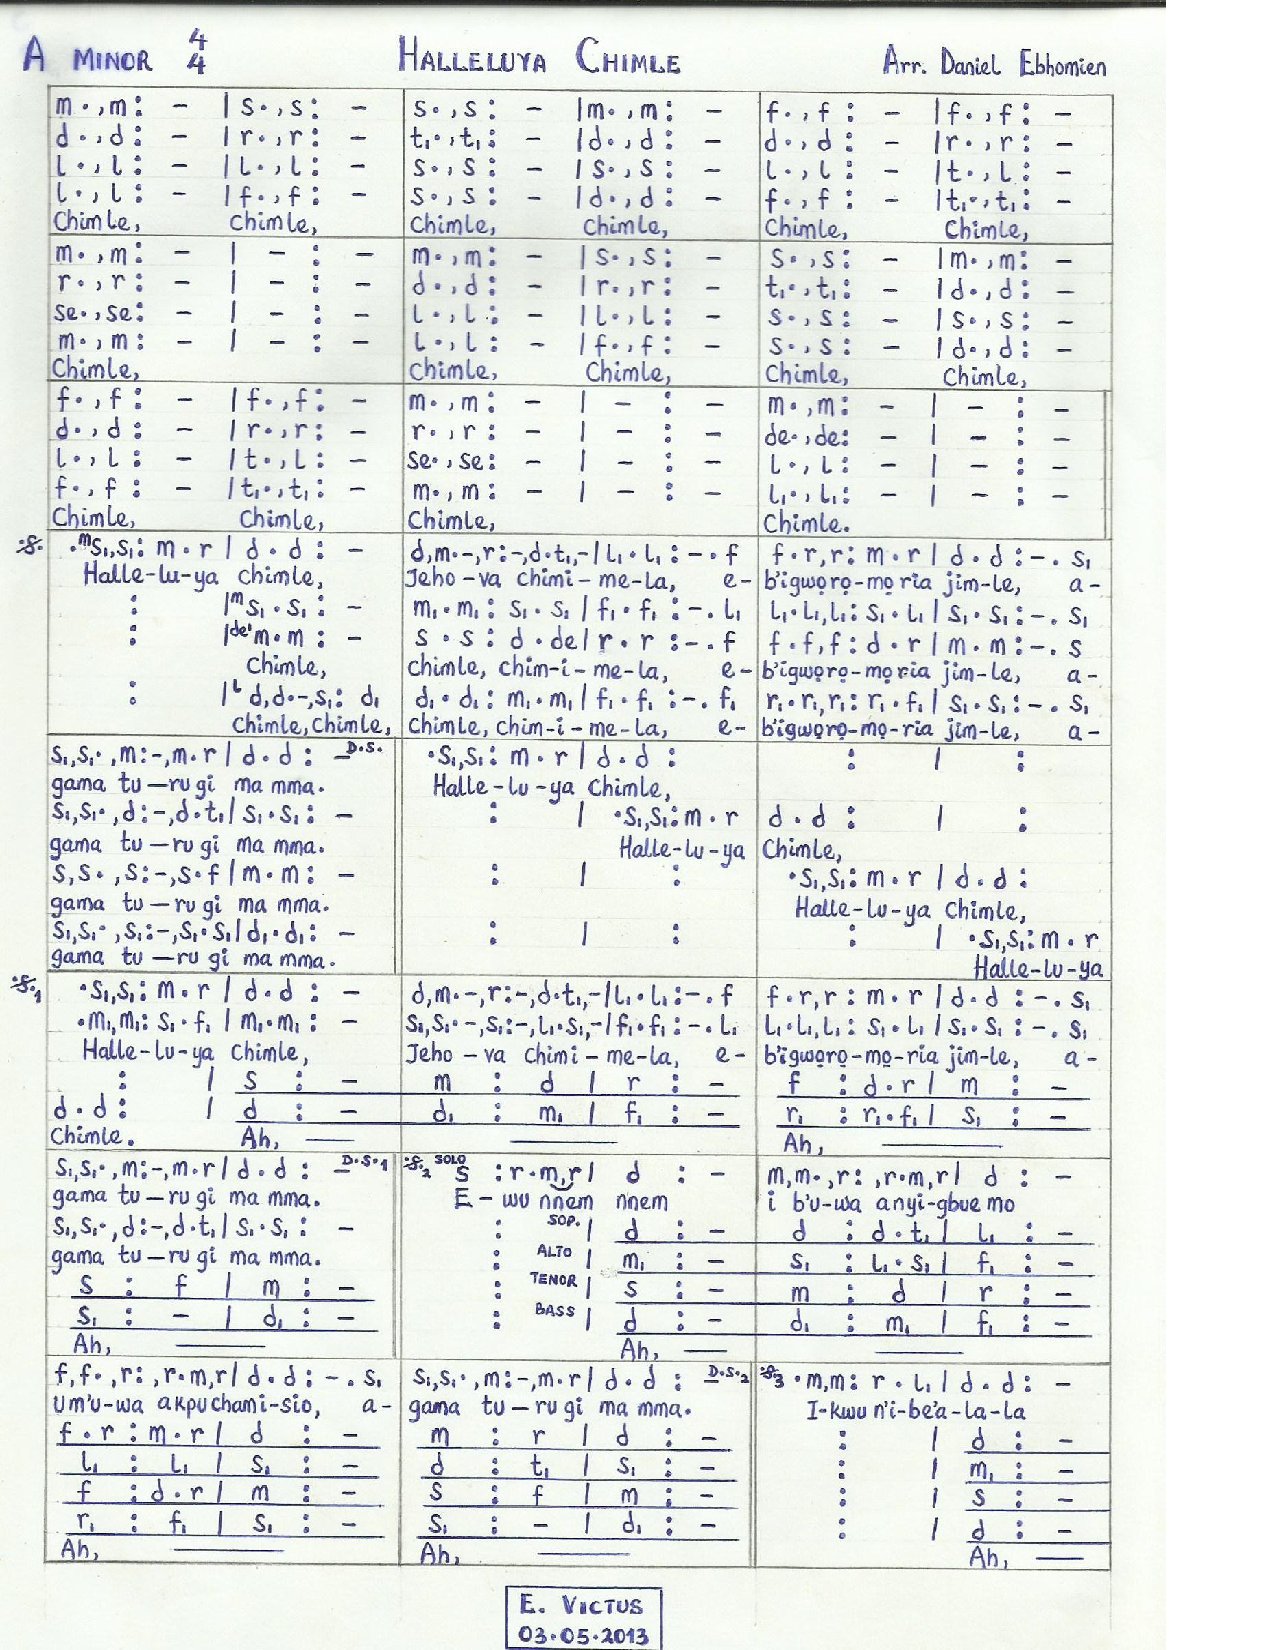 A MINOR 4/4 HALLELUYA CHIMLE Arr. Daniel Ebhomien
m·,m: - | s·,s: - s·,s: - |m·,m: - f·,f: - |f·,f: -
d·,d: - | r·,r: - t₁·,t₁: - |d·,d: - d·,d: - |r·,r: -
l·,l: - | l·,l: - s·,s: - | s·,s: - l·,l: - |t·,l: -
l·,l: - | f·,f: - s·,s: - | d·,d: - f·,f: - |t₁·,t₁: -
Chimle, Chimle, Chimle, Chimle, Chimle, Chimle,
m·,m: - | - : - m·,m: - | s·,s: - s·,s: - |m·,m: -
r·,r: - | - : - d·,d: - | r·,r: - t₁·,t₁: - |d·,d: -
se·,se: - | - : - l·,l: - | l·,l: - s·,s: - | s·,s: -
m·,m: - | - : - l·,l: - | f·,f: - s·,s: - |d·,d: -
Chimle, Chimle, Chimle, Chimle, Chimle,
f·,f: - | f·,f: - m·,m: - | - : - m·,m: - | - : -
d·,d: - | r·,r: - r·,r: - | - : - de·,de: - | - : -
l·,l: - | t·,l: - se·,se: - | - : - l·,l: - | - : -
f·,f: - | t₁·,t₁: - m·,m: - | - : - l₁·,l₁: - | - : -
Chimle, Chimle, Chimle, Chimle.
:S. ·ᵐs₁,s₁: m·r | d·d: - d,m·-,r:-,d·t₁,-| l₁·l₁:-·f f·r,r: m·r | d·d:-·s₁
Halle-lu-ya chimle, Jeho-va chimi-me-la, e- b'igwọrọ-mọ ria jim-le, a-
: |ᵐs₁·s₁: - m₁·m₁: s₁·s₁ | f₁·f₁:-·l₁ l₁·l₁,l₁: s₁·l₁ | s₁·s₁:-·s₁
: |ᵈᵉ'm·m: - s·s: d·de| r·r:-·f f·f,f: d·r | m·m:-·s
Chimle, Chimle, chim-i-me-la, e- b'igwọrọ-mọ ria jim-le, a-
: |ˡd,d·-,s₁: d₁ d₁·d₁: m₁·m₁ | f₁·f₁:-·f₁ r₁·r₁,r₁: r₁·f₁ | s₁·s₁:-·s₁
Chimle,Chimle, Chimle, chim-i-me-la, e- b'igwọrọ-mọ-ria jim-le, a-
s₁,s₁·,m:-,m·r | d·d: - D.S. ·s₁,s₁: m·r | d·d: : | :
gama tu-ru gi ma mma. Halle-lu-ya Chimle,
s₁,s₁·,d:-,d·t₁| s₁·s₁: - : | ·s₁,s₁:m·r d·d: | :
gama tu-ru gi ma mma. Halle-lu-ya Chimle,
s,s·,s:-,s·f | m·m: - : | : ·s₁,s₁: m·r | d·d:
gama tu-ru gi ma mma. Halle-lu-ya Chimle,
s₁,s₁·,s₁:-,s₁·s₁| d₁·d₁: - : | : : | ·s₁,s₁:m·r
gama tu-ru gi ma mma. Halle-lu-ya
:S.₁ ·s₁,s₁: m·r | d·d: - d,m·-,r:-,d·t₁,-| l₁·l₁:-·f f·r,r: m·r | d·d:-·s₁
·m₁,m₁: s₁·f₁ | m₁·m₁: - s₁,s₁·-,s₁:-,l₁·s₁,-| f₁·f₁:-·l₁ l₁·l₁,l₁: s₁·l₁ | s₁·s₁:-·s₁
Halle-lu-ya Chimle, Jeho-va chimi-me-la, e- b'igwọrọ-mọ-ria jim-le, a-
: | s : - m : d | r : - f : d·r | m : -
d·d: | d : - d₁ : m₁ | f₁ : - r₁ : r₁·f₁ | s₁ : -
Chimle. Ah, Ah,
s₁,s₁·,m:-,m·r | d·d: - D.S.₁ :S.₂ SOLO s :r·m,r| d : - m,m·,r: ,r·m,r| d : -
gama tu-ru gi ma mma. E-wu nnem nnem i b'u-wa anyi-gbue mo
s₁,s₁·,d:-,d·t₁| s₁·s₁: - : SOP. | d : - d : d·t₁ | l₁ : -
gama tu-ru gi ma mma. : ALTO | m₁ : - s₁ : l₁·s₁ | f₁ : -
s : f | m : - : TENOR | s : - m : d | r : -
s₁ : - | d₁ : - : BASS | d : - d₁ : m₁ | f₁ : -
Ah, Ah,
f,f·,r: ,r·m,r | d·d:-·s₁ s₁,s₁·,m:-,m·r | d·d: - D.S.₂ :S.₃ ·m,m: r·l₁ | d·d: -
Um'u-wa akpuchami-sio, a- gama tu-ru gi ma mma. I-kwu n'i-be'a-la-la
f·r : m·r | d : - m : r | d : - : | d : -
l₁ : l₁ | s₁ : - d : t₁ | s₁ : - : | m₁ : -
f : d·r | m : - s : f | m : - : | s : -
r₁ : f₁ | s₁ : - s₁ : - | d₁ : - : | d : -
Ah, Ah, Ah,
E. VICTUS
03·05·2013